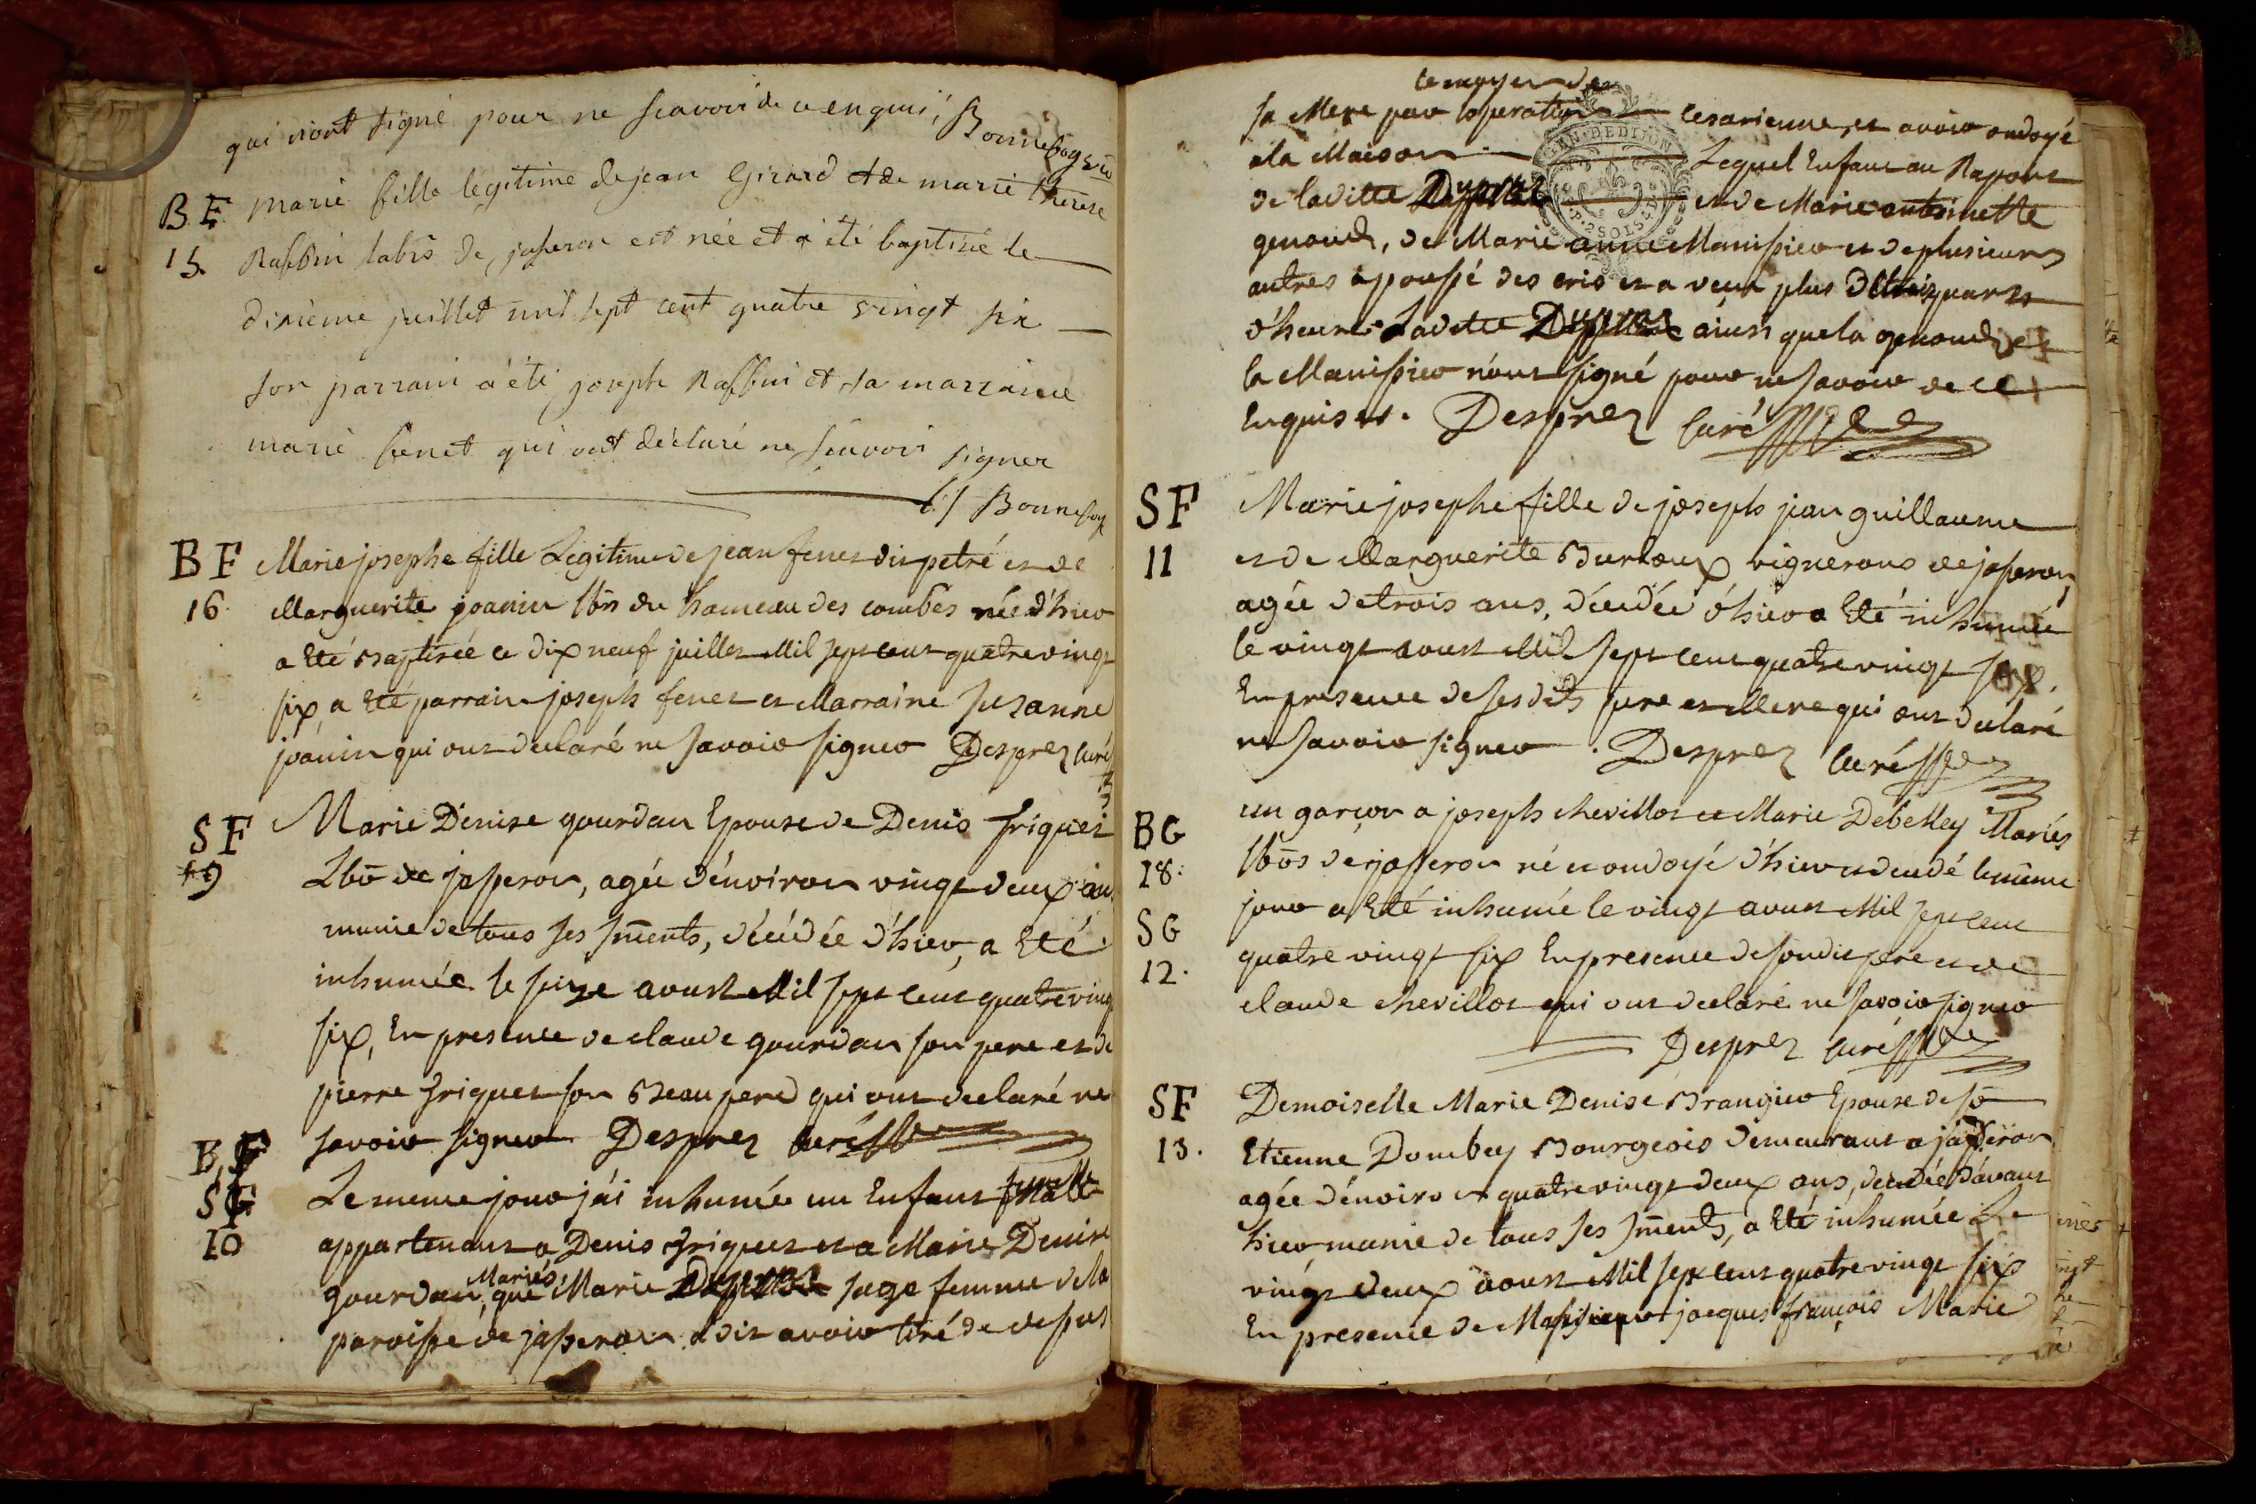 qui n'ont signé pour ne sçavoir de ce enquis, Bonnefoy
B F marie fille legitime de jean Girard et de marie therese
15. Raffin habts de jasseron est née et a été baptisée le
dixieme juillet mil sept cent quatre vingt six
son parrain a été joseph Raffin et sa marraine
marie fenet qui ont déclaré ne sçavoir signer
Bonnefoy
B F Marie josephe fille Légitime de jean fenet dit petré et de
16. Marguerite joanin hbts du hameau des combes née d'hier
a Eté Baptisée ce dix neuf juillet Mil sept cent quatre vingt
six, a Eté parrain joseph fenet et Marraine Suzanne
joanin qui ont declaré ne savoir signer Desprez Curé
S F Marie Denise gourdan Epouse de Denis friquet
9 hbts de jasseron, agée d'environ vingt deux ans
munie de tous ses sments, décédée d'hier, a Eté
inhumée le seize aoust Mil sept cent quatre vingt
six, En presence de claude gourdan son pere et de
pierre friquet son Beau pere qui ont declaré ne
savoir signer Desprez curé
B
S G Le meme jour j'ai inhumée un Enfant
10 appartenant a Denis friquet et a Marie Denise
gourdan Mariés, que Marie sage femme de la
paroisse de jasseron a dit avoir tiré de
le moyen de
sa Mere par l'operation cesarienne, et avoir ondoyé
a la Maison Lequel Enfant au Raport
de laditte et de Marie antoinette
genoud, de Marie anne Manissier et de plusieurs
autres a poussé des cris et a vecu plus de trois quarts
d'heure Laditte ainsi que la genoud et
la Manissier n'ont signé pour ne savoir de ce
Enquises. Desprez Curé
S F Marie josephe fille de joseph jean guillaume
11 et de Marguerite Burtoux vignerons de jasseron,
agée de trois ans, décédée d'hier a Eté inhumée
le vingt aoust Mil sept cent quatre vingt six.
En presence de ses dits pere et Mere qui ont declaré
ne savoir signer. Desprez Curé
B G un garçon a joseph chevillot et Marie Debelley Mariés
18. hbts de jasseron né et ondoyé d'hier et decedé le même
S G jour a Eté inhumé le vingt aoust Mil sept cent
12. quatre vingt six En presence de son dit pere et de
claude chevillot qui ont declaré ne savoir signer
Desprez curé
S F Demoiselle Marie Denise Brangier Epouse de sr
13. Etienne Dombey Bourgeois demeurant a jasseron
agée d'environ quatre vingt deux ans, decedée d'avant
hier munie de tous ses sments, a Eté inhumée Le
vingt deux aoust Mil sept cent quatre vingt six
En presence de jacques françois Marie